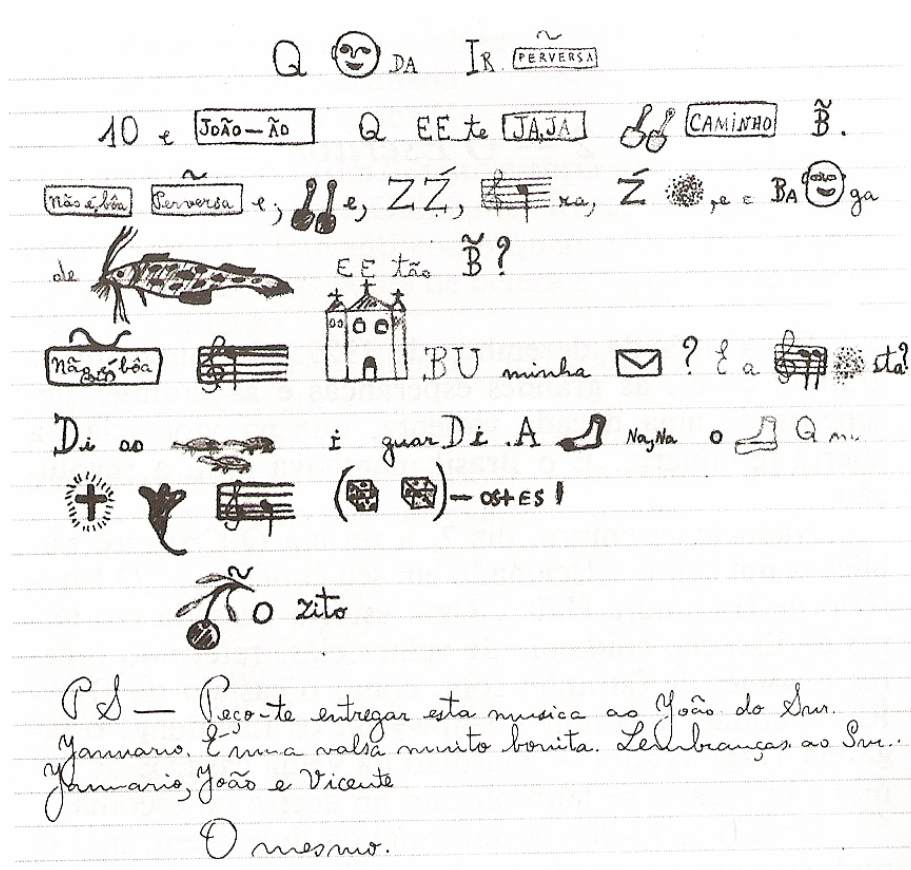 Q DA IR PERVERSA
10 e JOÃO-ÃO Q EE te JAJA CAMINHO B̃.
Não é bôa Perversa e, e, ZŹ, ra, Ź , e e BA ga
de EE tão B̃?
Não é bôa BU minha ? E a sta?
Di ao i guarDi. A Na, Na o Q
( )-OSTES!
O zito
PS — Peço-te entregar esta musica ao João do Snr.
Jannuario. É uma valsa muito bonita. Lembranças ao Snr.
Jannuario, João e Vicente
O mesmo.